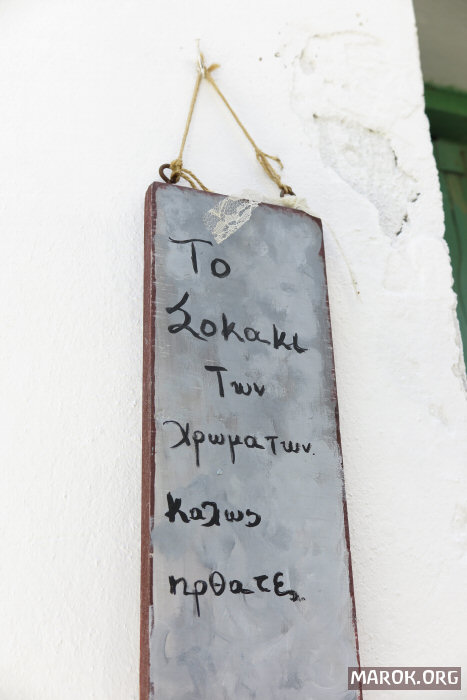 Το
Σοκακι
Των
χρωματων.
Καλως
ηρθατε
MAROK.ORG